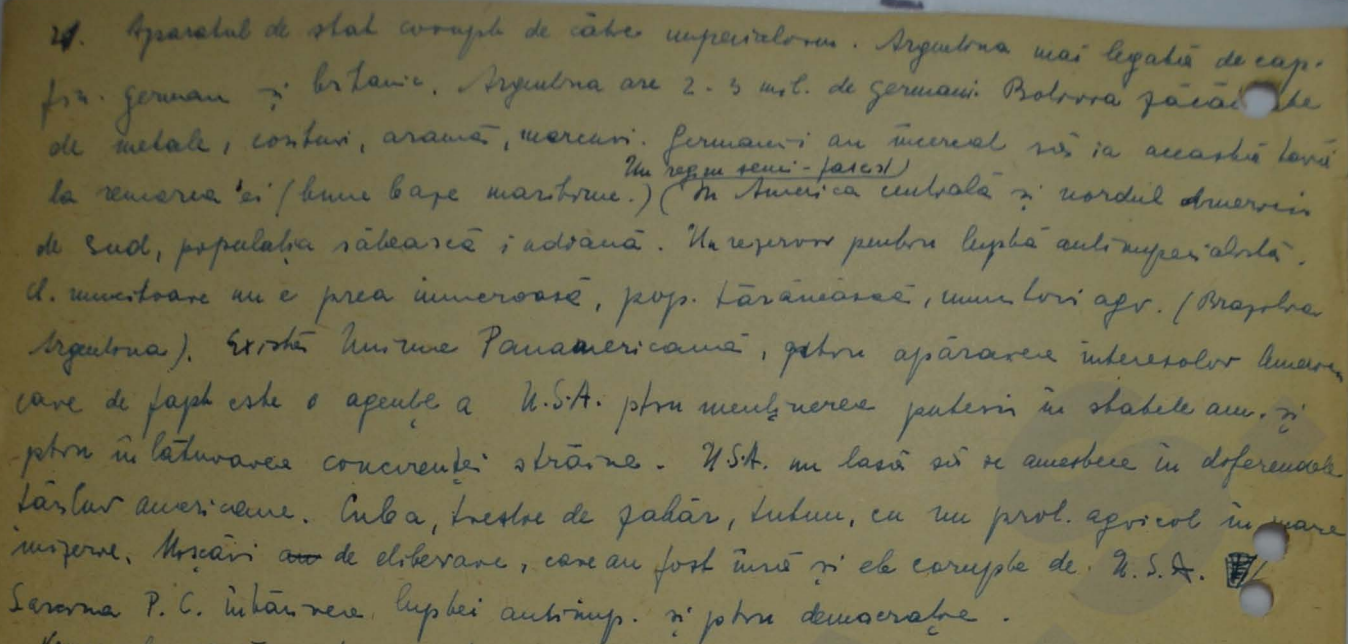 21. Aparatul de stat corupt de către imperialism. Argentina mai legată de cap.
fin. german și britanic. Argentina are 2-3 mil. de germani. Bolivia zăcăminte
de metale, cositor, aramă, mercur. Germanii au încercat să ia această țară
Un regim semi-fascist
la remorca ei (bune baze maritime.) (În America centrală și nordul Americii
de Sud, populația sălbească indiană. Un rezervor pentru luptă antiimperialistă.
Cl. muncitoare nu e prea numeroasă, pop. țărănească, muncitori agr. (Brazilia
Argentina). Există Uniunea Panamericană, pttru apărarea intereselor Americii
care de fapt este o agenție a U.S.A. ptru menținerea puterii în statele am. și
ptru înlăturarea concurenței străine. U.S.A. nu lasă să se amestece în diferendele
țărilor americane. Cuba, trestie de zahăr, tutun, cu un prol. agricol în mare
mizerie. Mișcări de eliberare, care au fost însă și ele corupte de U.S.A.
Sarcina P.C. întărirea luptei antiimp. și ptru democrație.